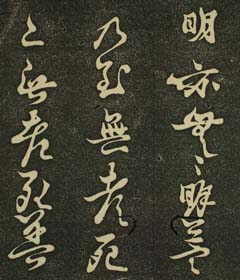 明亦無〻明盡
乃至無老死
亦無老死盡